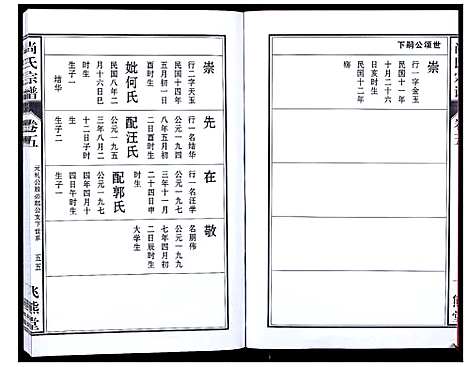 世頌公嗣下
行一字金玉
民國十一年
十一月十二
日亥时生
嗣
崇
行二字天玉
民國十四年
五月初一日
酉时生
妣何氏
民國八年二
月十六日巳
时生
生子一
结华
先
行一名结华
公元一九四
八年五月
配汪氏
公元一九五
三年八月二
十二日子时
生
生子二
在
行一名汪学
公元一九七
三年十一月
二十四日申
时生
配郭氏
公元一九七
四年四月十
四日午时生
生子一
敬
名朋伟
公元一九九
七年四月初
二日辰时生
大学生
尚氏宗譜
卷五
五五
飞熊堂